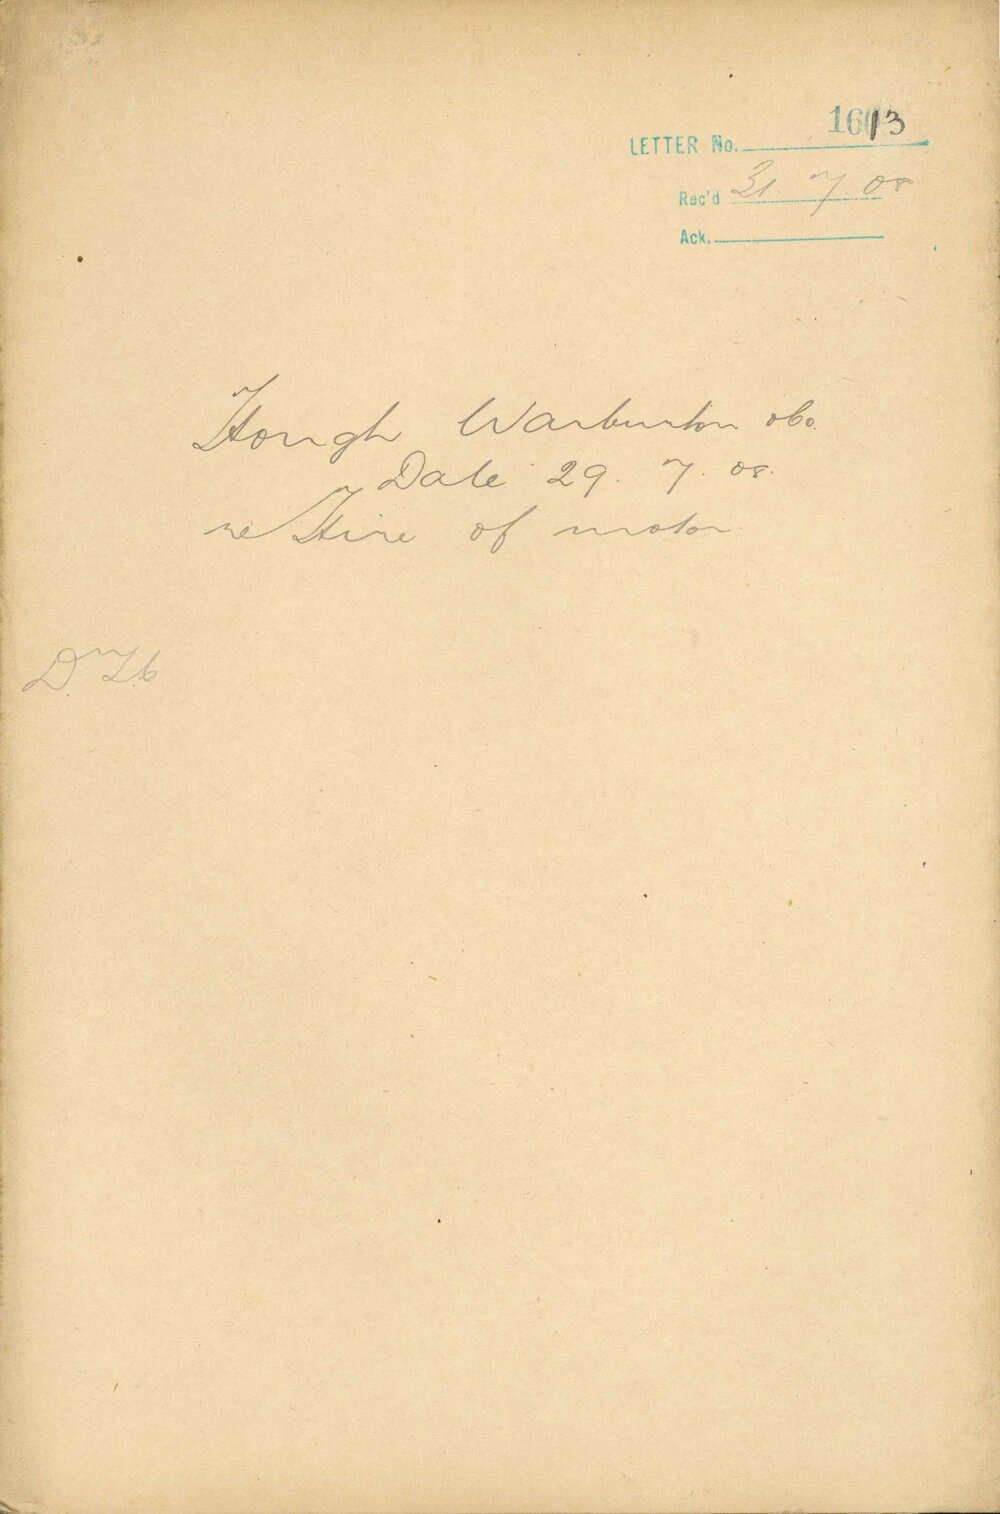 LETTER No. 1613
Rec'd 31. 7 08
Ack.
Hough Warburton obo.
Date 29. 7. 08.
re Hire of motor